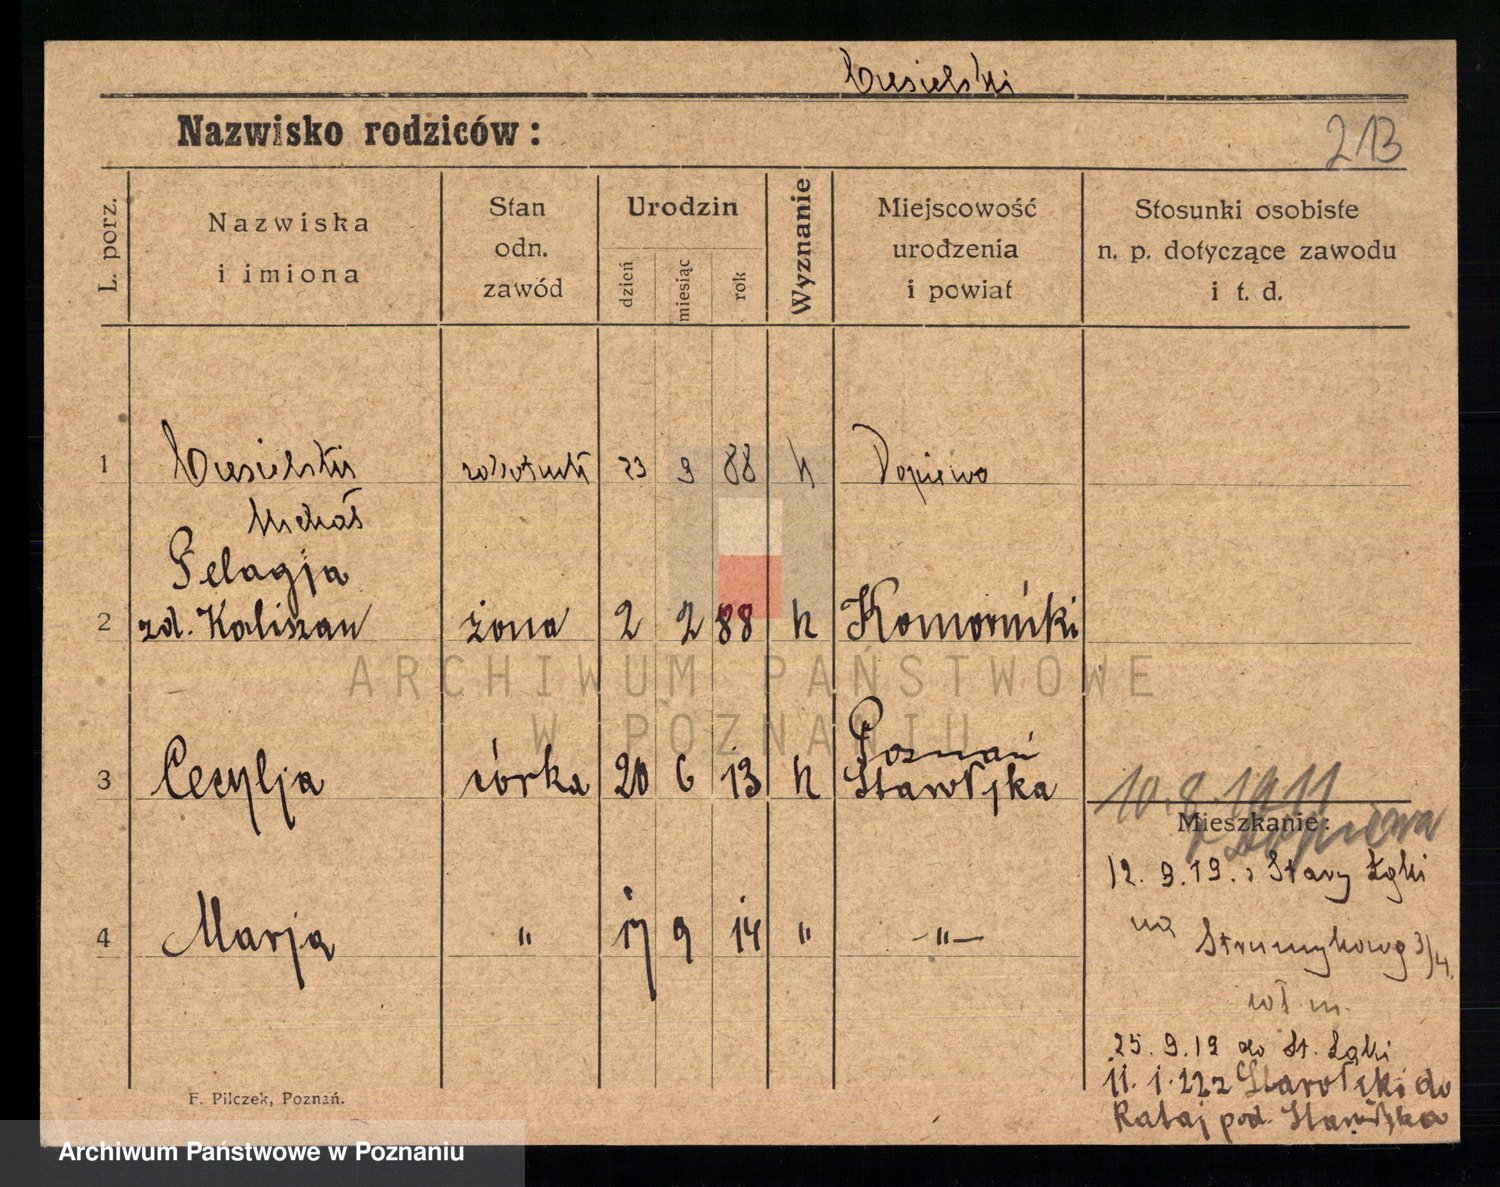 Ciesielski
Nazwisko rodziców:
213
L. porz.
Nazwiska
i imiona
Stan
odn.
zawód
Urodzin
dzień
miesiąc
rok
Wyznanie
Miejscowość
urodzenia
i powiat
Stosunki osobiste
n. p. dotyczące zawodu
i t. d.
1 Ciesielski robotnik 23 9 88 k Dopiewo
Michał
Pelagja
2 zd. Kaliszan żona 2 2 88 k Komorniki
ARCHIWUM PAŃSTWOWE
W POZNANIU
Poznań
3 Cecylja córka 20 6 13 k Starołęka
10.8.1911
Mieszkanie:
z Dopiewa
12.9.19. z Stary Łęki
4 Marja " 17 9 14 " -"-
na
Strumykową 3/4.
25.9.19 do St. Łęki
11.1.22 Starołęki do
Rataj pod. Starołęka
F. Pilczek, Poznań.
Archiwum Państwowe w Poznaniu